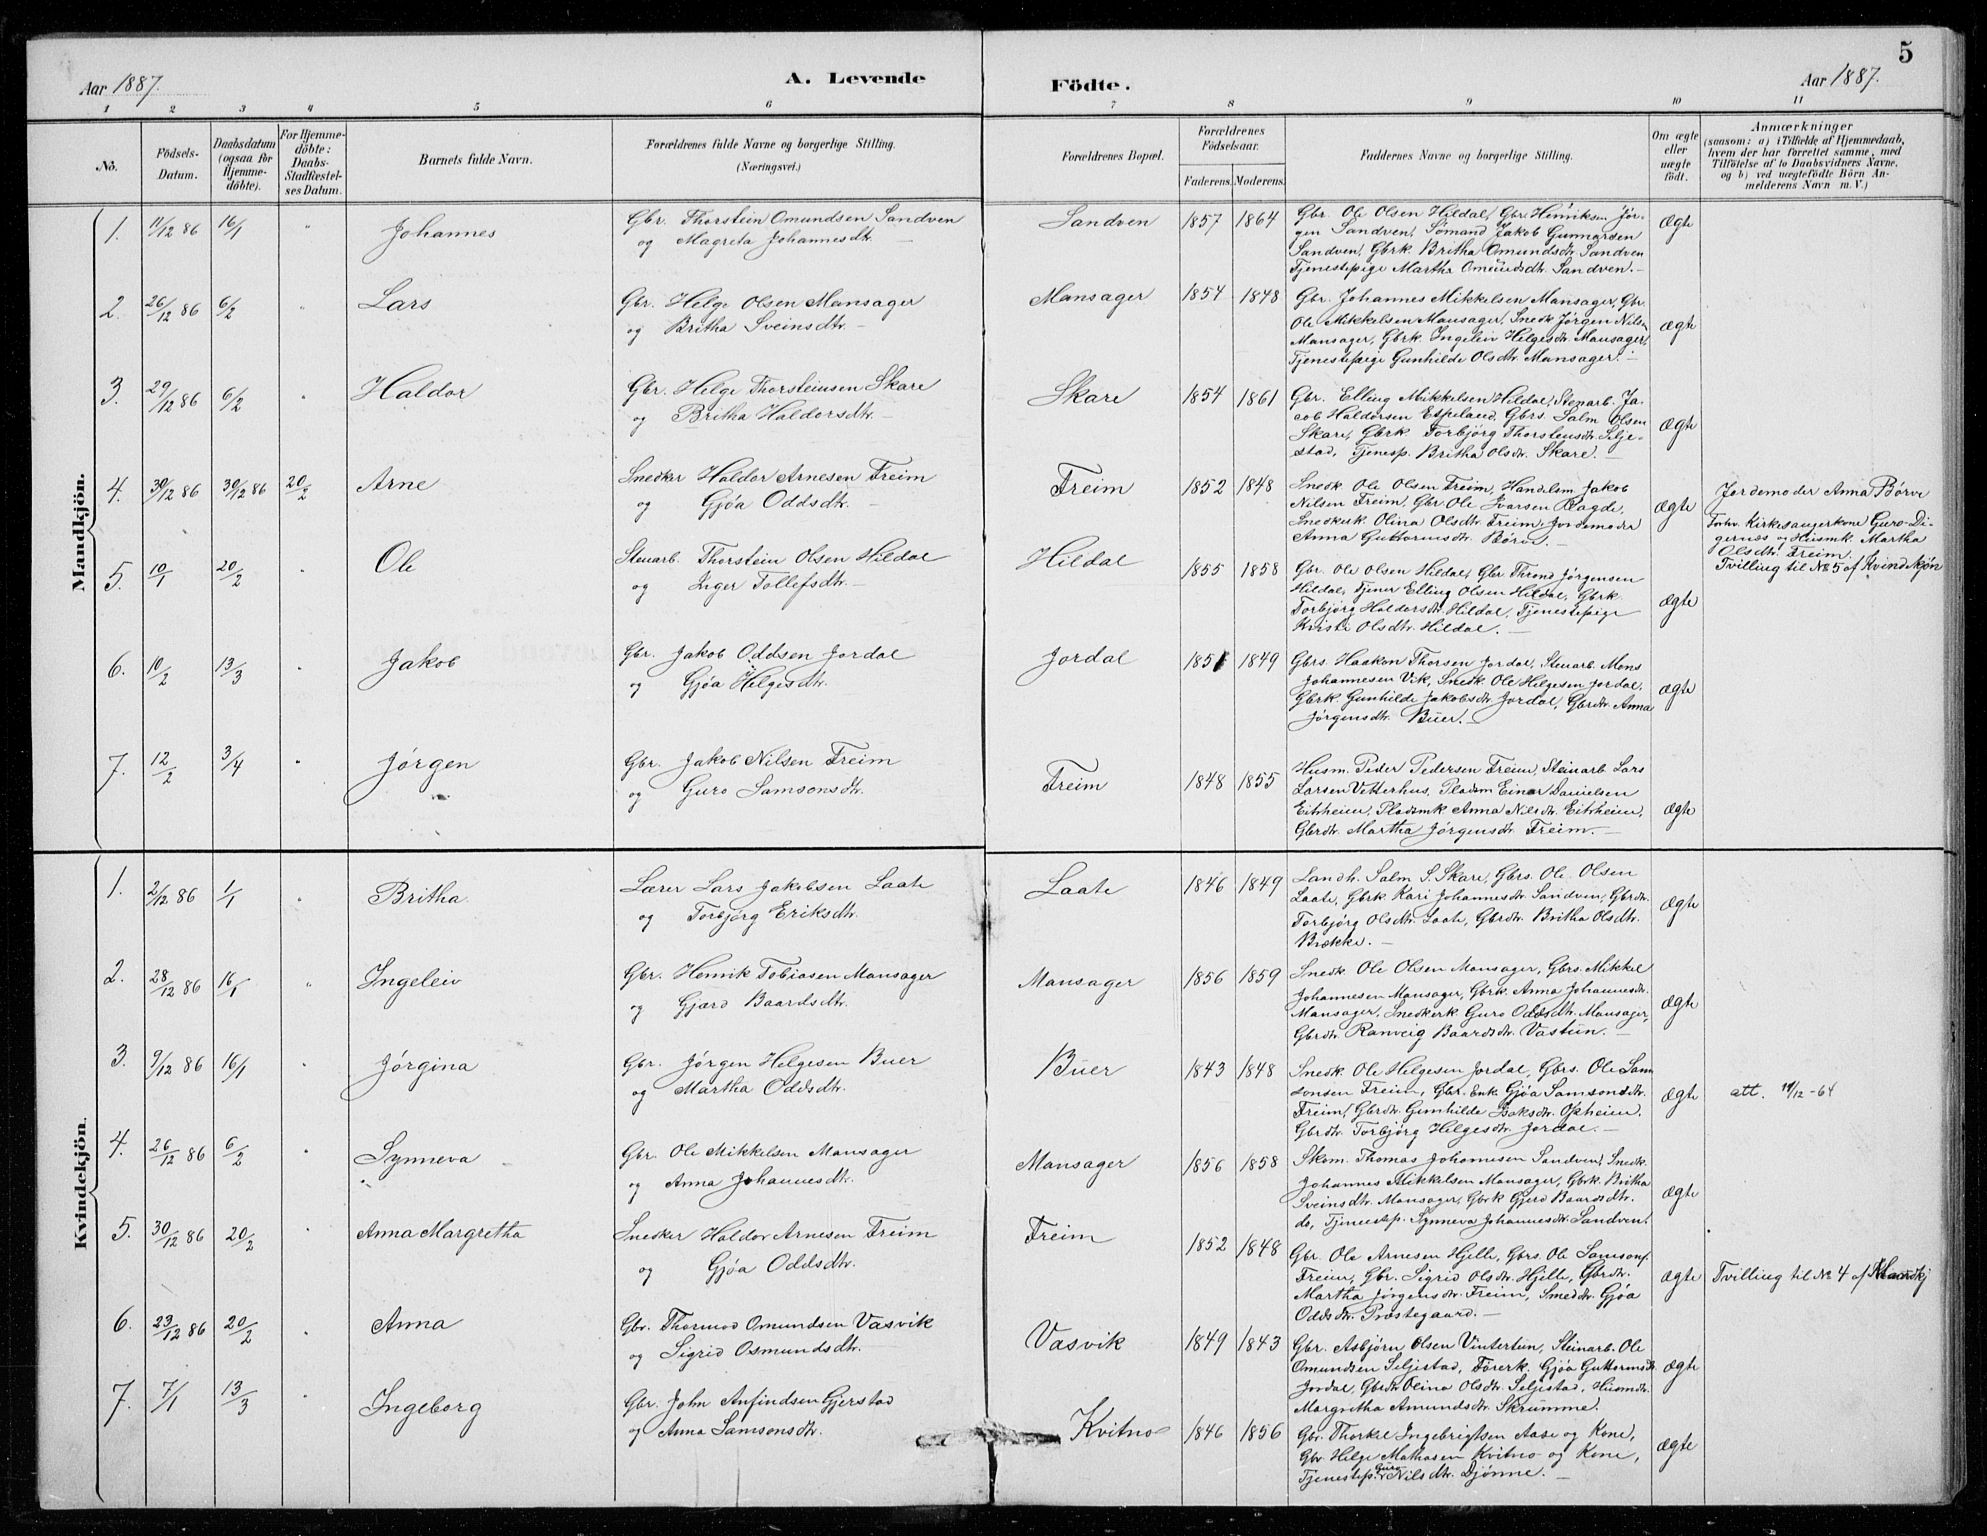 5
Aar 1887. A. Levende Födte. Aar 1887.
1 2 3 4 5 6 7 8 9 10 11
Nö.
Födsels-Datum.
Daabsdatum (ogsaa for Hjemmedöbte).
For Hjemmedöbte: Daabs-Stadfæstelses Datum.
Barnets fulde Navn.
Forældrenes fulde Navne og borgerlige Stilling.
(Næringsvei.)
Forældrenes Bopæl.
Forældrenes Födselsaar.
Faderens. Moderens.
Faddernes Navne og borgerlige Stilling.
Om ægte eller uægte födt.
Anmærkninger
(saasom: a) i Tilfælde af Hjemmedaab,
hvem der har forrettet samme, med
Tilföielse af to Daabsvidners Navne,
og b) ved uægtefödte Börn An-
melderens Navn m. V.)
Mandkjön.
1. 11/12 86 16/1 " Johannes
Gbr. Thorstein Omundsen Sandven
og Magreta Johannesdtr. —
Sandven 1857 1864
Gbr. Ole Olsen Hildal, Gbr. Henriksen Jør-
gen Sandven, Sømand Jakob Gunnarsen
Sandven, Gbrk. Britha Omundsdtr. Sandven
Tjenestepige Martha Omundsdtr. Sandven. —
Ægte
2. 26/12 86 6/2 " Lars
Gbr. Helge Olsen Mansager
og Britha Sveinsdtr. —
Mansager 1854 1848
Gbr. Johannes Mikkelsen Mansager, Gbr.
Ole Mikkelsen Mansager, Snedk. Jørgen Nilsen
Mansager, Gbrk. Ingeleiv Helgesdtr. Mansager,
Tjenestepige Gunhilde Olsdtr. Mansager. —
Ægte
3. 29/12 86 6/2 " Haldor
Gbr. Helge Thorsteinsen Skare
og Britha Haldorsdtr. —
Skare 1854 1861
Gbr. Elling Mikkelsen Hildal, Stenarb. Ja-
cob Haldorsen Espeland, Gbrs. Salm. Olsen
Skare, Gbrk. Torbjörg Thorsteinsdtr. Selje-
stad, Tjenesp. Britha Olsdtr. Skare. —
Ægte
4. 30/12 86 30/12 86 20/2 Arne
Snedker Haldor Arnesen Freim
og Gjøa Oddsdtr. —
Freim 1852 1848
Snedk. Ole Olsen Freim, Handelsm. Jakob
Nilsen Freim, Gbr. Ole Ivarsen Ragde,
Snedkerk. Olina Olsdtr. Freim, Jordemoder
Anna Guttormsdtr. Børve. —
Ægte
Jordemoder Anna Børve
Forhv. Kirkesangerkone Guro Di-
gernæs og Husmk. Martha
Olsdtr. Freim.
Tvilling til № 5 af Kvindekjön
5. 10/1 20/2 " Ole
Stenarb. Thorstein Olsen Hildal
og Inger Tollefsdtr. —
Hildal 1855 1858
Gbr. Ole Olsen Hildal, Gbr. Thrond Jørgensen
Hildal, Tjener Elling Olsen Hildal, Gbrk.
Torbjørg Haldorsdtr. Hildal, Tjenestepige
Kristi Olsdtr. Hildal. —
Ægte
6. 10/2 13/3 " Jakob
Gbr. Jakob Oddsen Jordal
og Gjøa Helgesdtr.
Jordal 1851 1849
Gbrs. Haakon Thorsen Jordal, Stenarb. Mons
Johannesen Vik, Snedk. Ole Helgesen Jordal,
Gbrk. Gunhilde Jakobsdtr. Jordal, Gbrdtr. Anna
Jørgensdtr. Buer. —
Ægte
7. 12/2 3/4 " Jørgen
Gbr. Jakob Nilsen Freim
og Guro Samsonsdtr.
Freim 1848 1855
Husm. Peder Pedersen Freim, Steinarb. Lars
Larsen Vetterhus, Pladsm. Einar Danielsen
Eitrheim, Pladsmk. Anna Nilsdtr. Eitrheim,
Gbrdtr. Martha Jørgensdtr. Freim. —
Ægte
Kvindekjön.
1. 2/12 86 1/1 " Britha
Lærer Lars Jakobsen Laate
og Torbjørg Eriksdtr.
Laate 1846 1849
Landh. Salm. S. Skare, Gbrs. Ole Olsen
Laate, Gbrk. Kari Johannesdtr. Sandven, Gbrdtr.
Torbjørg Olsdtr. Laate, Gbrdtr. Britha Olsdtr.
Brække. —
Ægte
2. 28/12 86 16/1 " Ingeleiv
Gbr. Henrik Tobiasen Mansager
og Gjærd Baardsdtr.
Mansager 1856 1859
Snedk. Ole Olsen Mansager, Gbrs. Mikkel
Johannesen Mansager, Gbrk. Anna Johannesdtr.
Mansager, Snedkerk. Guro Oddsdtr. Mansager,
Gbrdtr. Ranveig Baardsdtr. Vastun. —
Ægte
3. 9/12 86 16/1 " Jørgina
Gbr. Jørgen Helgesen Buer
og Martha Oddsdtr.
Buer 1843 1848
Snedk. Ole Helgesen Jordal, Gbrs. Ole Sam
sonsen Freim, Gbr. Enk. Gjøa Samsonsdtr.
Freim, Gbrdtr. Gunhilde Isaksdtr. Opheim,
Gbrdtr. Torbjørg Helgesdtr. Jordal. —
Ægte
att. 19/12-64
4. 26/12 86 6/2 " Synneva
Gbr. Ole Mikkelsen Mansager
og Anna Johannesdtr.
Mansager 1856 1858
Skom. Thomas Johannesen Sandven, Snedk.
Johannes Mikkelsen Mansager, Gbrk. Britha
Sveinsdtr. Mansager, Gbrk. Gjerd Baardsdtr.
do, Tjenestep. Synneva Johannesdtr. Sandven.
Ægte
5. 30/12 86 20/2 " Anna Margretha
Snedker Haldor Arnesen Freim
og Gjøa Oddsdtr.
Freim 1852 1848
Gbr. Ole Arnesen Hjelle, Gbrs. Ole Samsons.
Freim, Gbr. Sigrid Olsdtr. Hjelle, Gbrdtr.
Martha Jørgensdtr. Freim, Smeddtr. Gjøa
Oddsdtr. Præstegaard. —
Ægte
Tvilling til № 4 af Mandkj
6. 23/12 86 20/2 " Anna
Gbr. Thormod Omundsen Vasvik
og Sigrid Osmundsdtr.
Vasvik 1849 1843
Gbr. Asbjørn Olsen Vintertun, Steinarb. Ole
Omundsen Seljestad, Førerk. Gjøa Guttormsdtr.
Jordal, Gbrdtr. Olina Olsdtr. Seljestad, Husmdtr.
Margretha Amundsdtr. Skrumme.
Ægte
7. 7/1 13/3 " Ingeborg
Gbr. John Anfindsen Gjerstad
og Anna Samsonsdtr.
Kvitno 1846 1856
Gbr. Thorkel Ingebrigtsen Aase og Kone,
Gbr. Helge Mathosen Kvitno og Kone,
Tjenestep. Guro Nilsdtr. Djønne. —
Ægte